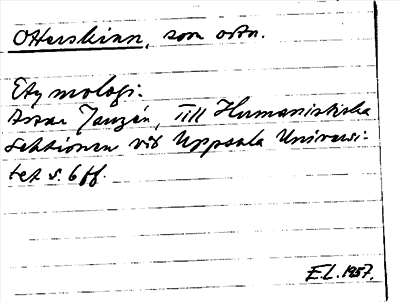 Otterskinn, som ortn.
Etymologi.
Assar Janzén, Till Humanistiska
Sektionen vid Uppsala Universi-
tet s. 6 ff.
E.L. 1957.